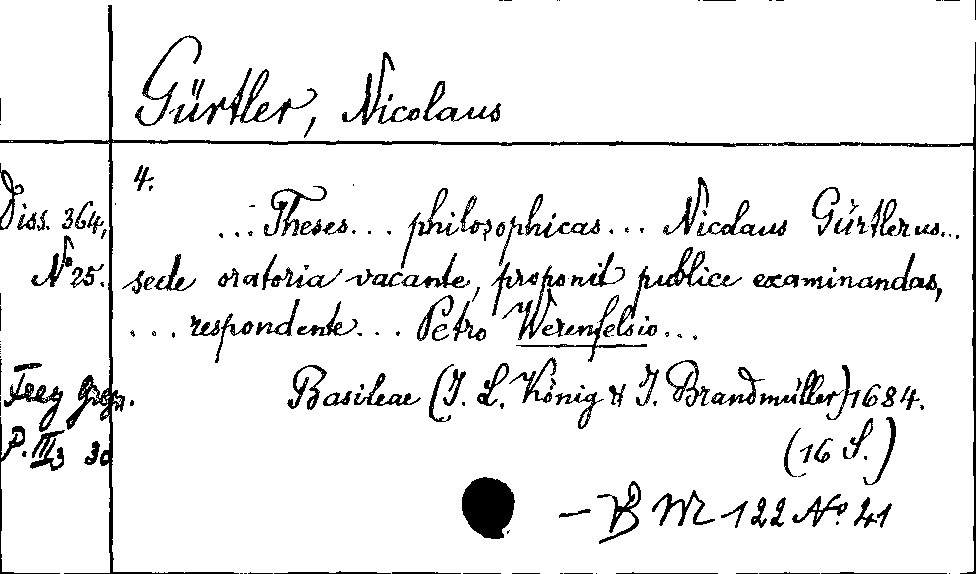 Gürtler, Nicolaus
4.
Diss. 364, ...Theses... philosophicas... Nicolaus Gürtlerus...
No 25. sede oratoria vacante, proponit publice examinandas,
... respondente... Petro Werenfelsio...
Frey Gryn. Basileae (J. L. König & J. Brandmüller) 1684.
P. III3 30 (16 S.)
– B M 122 No. 41